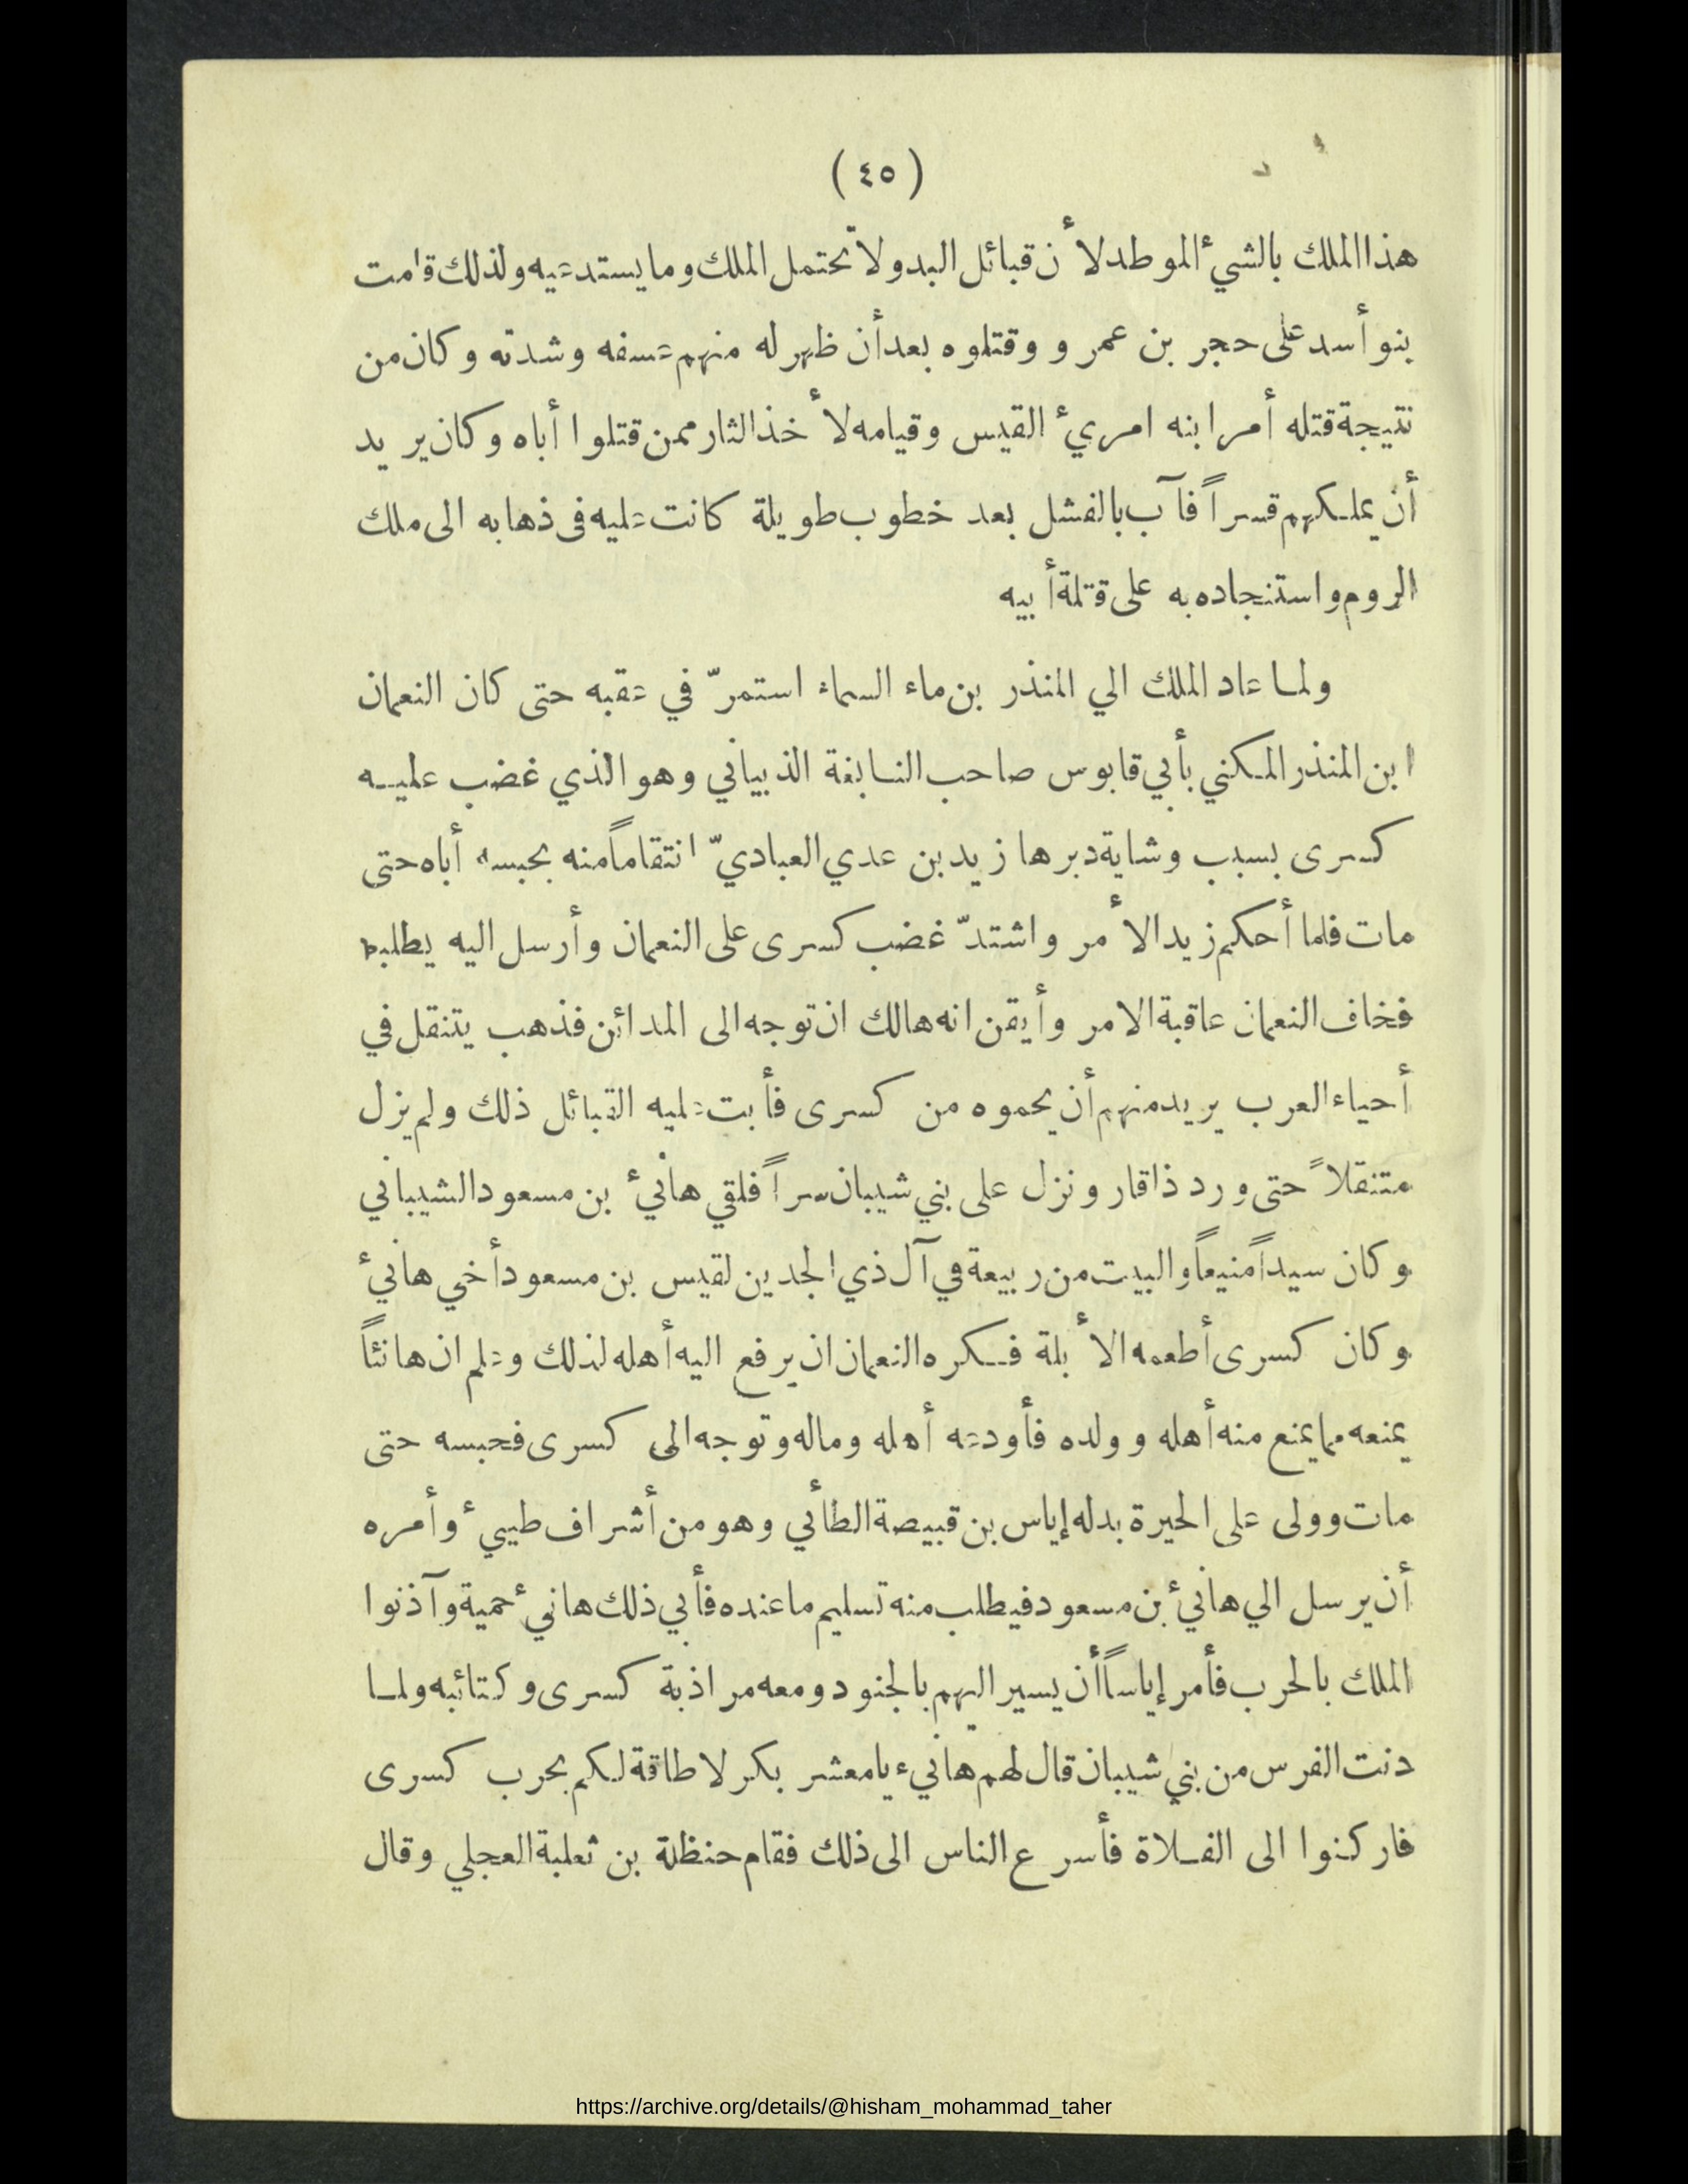 (٤٥)
هذا الملك بالشيءٔ الموطد لأن قبائل البدو لا تحتمل الملك وما يستدعيه ولذلك قامت
بنو أسد على حجر بن عمرو وقتلوه بعد أن ظهر له منهم عسفه وشدته وكان من
نتيجة قتله أمر ابنه امريءٔ القيس وقيامه لأخذ الثار ممن قتلوا أباه وكان يريد
أن يملكهم قسراً فآب بالفشل بعد خطوب طويلة كانت عليه في ذهابه الى ملك
الروم واستنجاده به على قتلة أبيه
ولما عاد الملك الي المنذر بن ماء السماء استمرّ في عقبه حتى كان النعمان
ابن المنذر المكني بأبي قابوس صاحب النابغة الذبياني وهو الذي غضب عليه
كسرى بسبب وشاية دبرها زيد بن عدي العباديّ انتقاماً منه بحبسه أباه حتى
مات فلما أحكم زيد الأمر واشتدّ غضب كسرى على النعمان وأرسل اليه يطلبه
فخاف النعمان عاقبة الامر وأيقن انه هالك ان توجه الى المدائن فذهب يتنقل في
أحياء العرب يريد منهم أن يحموه من كسرى فأبت عليه القبائل ذلك ولم يزل
متنقلاً حتى ورد ذا قار ونزل على بني شيبان سراً فلقي هانيءٔ بن مسعود الشيباني
وكان سيداً منيعاً والبيت من ربيعة في آل ذي الجدين لقيس بن مسعود أخي هانيءٔ
وكان كسرى أطعمه الأبلة فكره النعمان ان يرفع اليه أهله لذلك وعلم ان هانئاً
يمنعه مما يمنع منه أهله وولده فأودعه أهله وماله وتوجه الى كسرى فحبسه حتى
مات وولى على الحيرة بدله إياس بن قبيصة الطأئي وهو من أشراف طييءٔ وأمره
أن يرسل الي هانيءٔ بن مسعود فيطلب منه تسليم ما عنده فأبي ذلك هانيءٔ حمية وآذنوا
الملك بالحرب فأمر إياساً أن يسير اليهم بالجنود ومعه مرازبة كسرى وكتائبه ولما
دنت الفرس من بني شيبان قال لهم هانيء يا معشر بكر لا طاقة لكم بحرب كسرى
فاركنوا الى الفلاة فأسرع الناس الى ذلك فقام حنظلة بن ثعلبة العجلي وقال
https://archive.org/details/@hisham_mohammad_taher